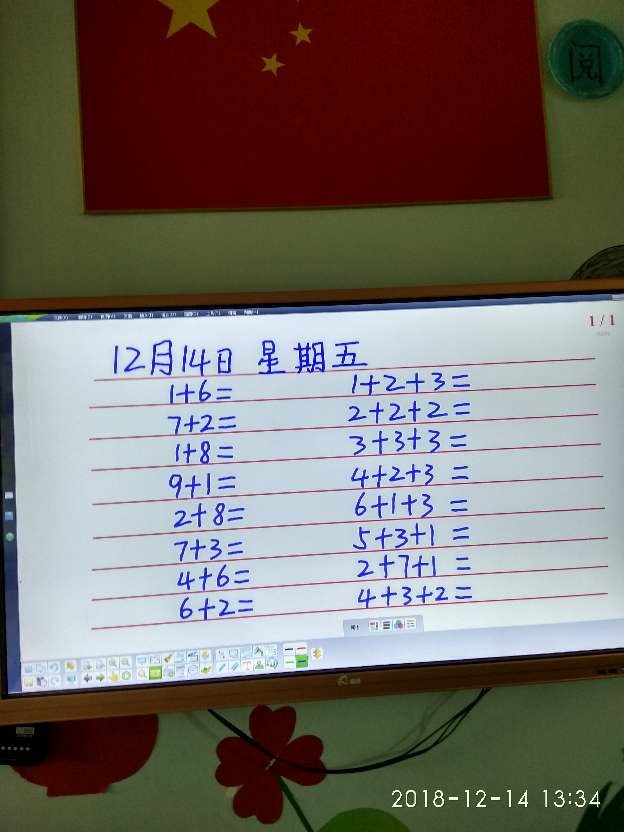 阅
1/1
12月14日 星期五
1+6= 1+2+3=
7+2= 2+2+2=
1+8= 3+3+3=
9+1= 4+2+3=
2+8= 6+1+3=
7+3= 5+3+1=
4+6= 2+7+1=
6+2= 4+3+2=
2018-12-14 13:34